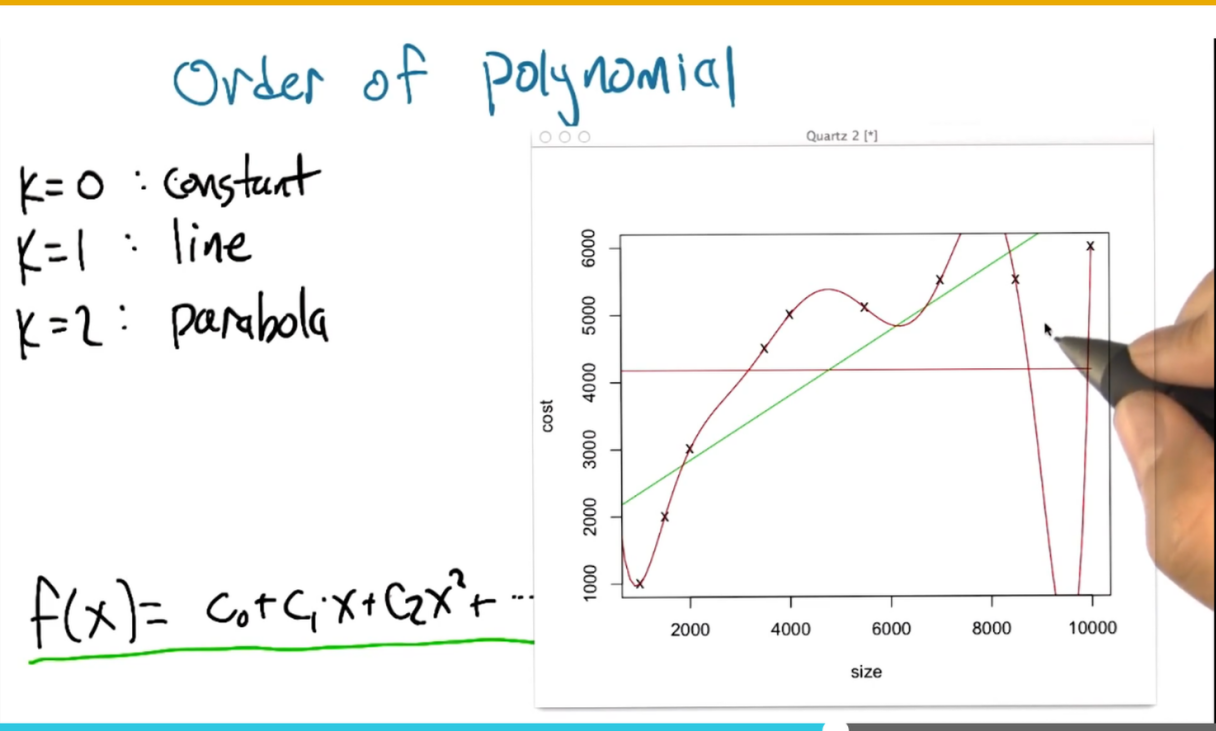 Order of polynomial
K=0 : constant
K=1 : line
K=2 : parabola
f(x)= c₀+c₁·x+c₂x²+ ...
Quartz 2 [*]
cost
6000
5000
4000
3000
2000
1000
2000 4000 6000 8000 10000
size